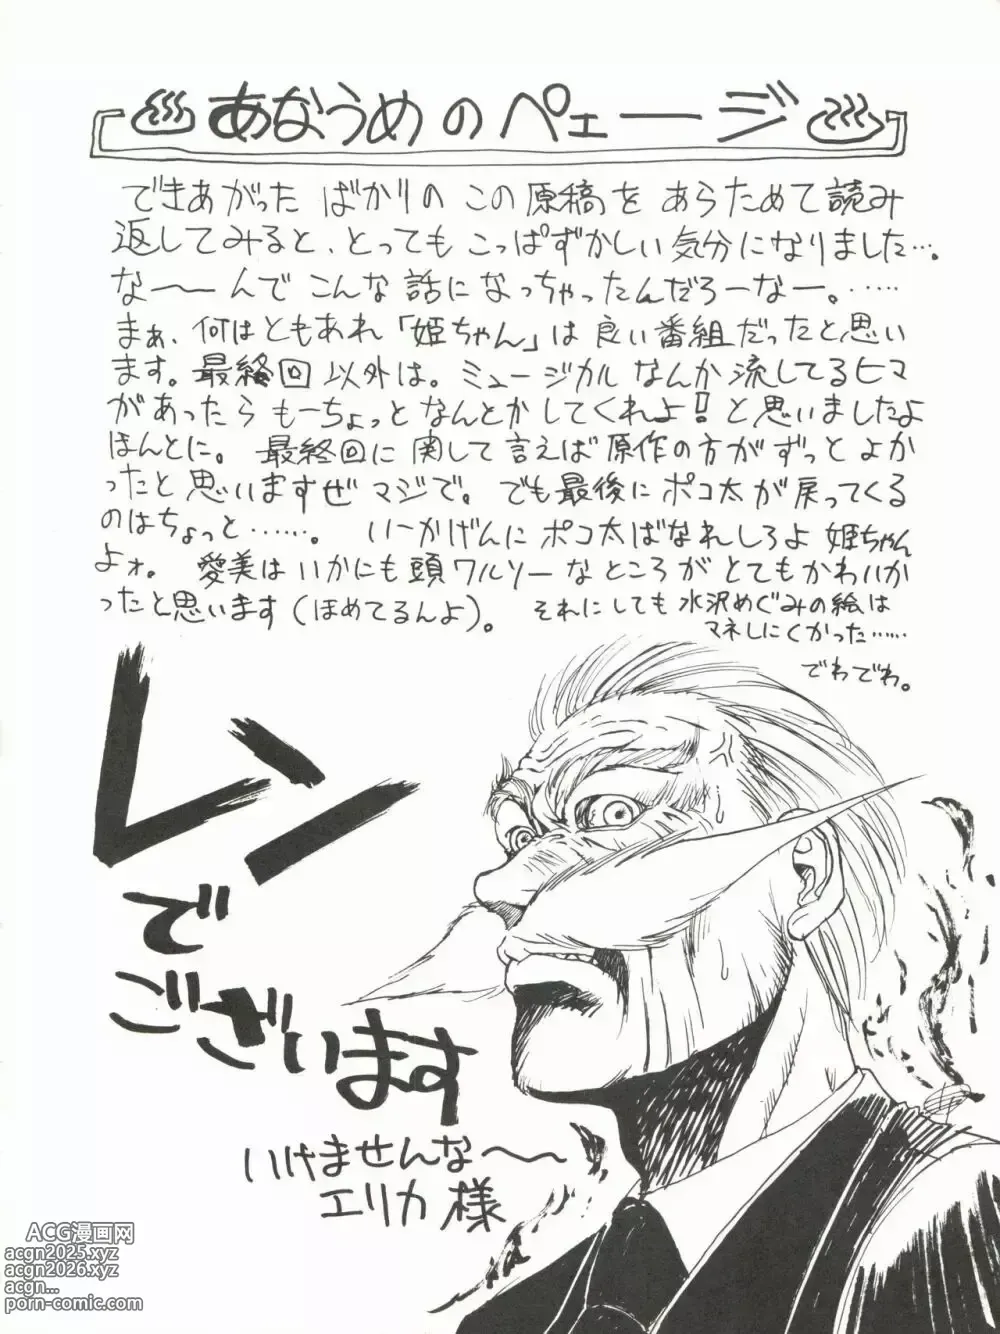 あなうめのペェージ
できあがった ばかりの この原稿を あらためて読み
返してみると、とっても こっぱずかしい気分になりました…。
な〜〜んで こんな 話に なっちゃったんだろーなー。……
まぁ、何はともあれ「姫ちゃん」は 良い番組だったと思い
ます。最終回 以外は。ミュージカル なんか 流してるヒマ
があったら もーちょっと なんとか してくれよ!! と思いましたよ
ほんとに。 最終回に 関して 言えば 原作の方が ずっと よか
ったと 思いますぜ マジで。でも最後に ポコ太が戻ってくる
のはちょっと……。 いーかげんに ポコ太ばなれしろよ 姫ちゃん
よォ。 愛美は いかにも頭ワルソーなところが とてもかわいか
ったと思います(ほめてるんよ)。 それにしても 水沢めぐみの絵は
マネしにくかった……
でわでわ。
レン
で
ございます
いけませんな〜〜
エリカ 様
ACG漫画网
acgn2025.xyz
acgn2026.xyz
acgn...
porn-comic.com/